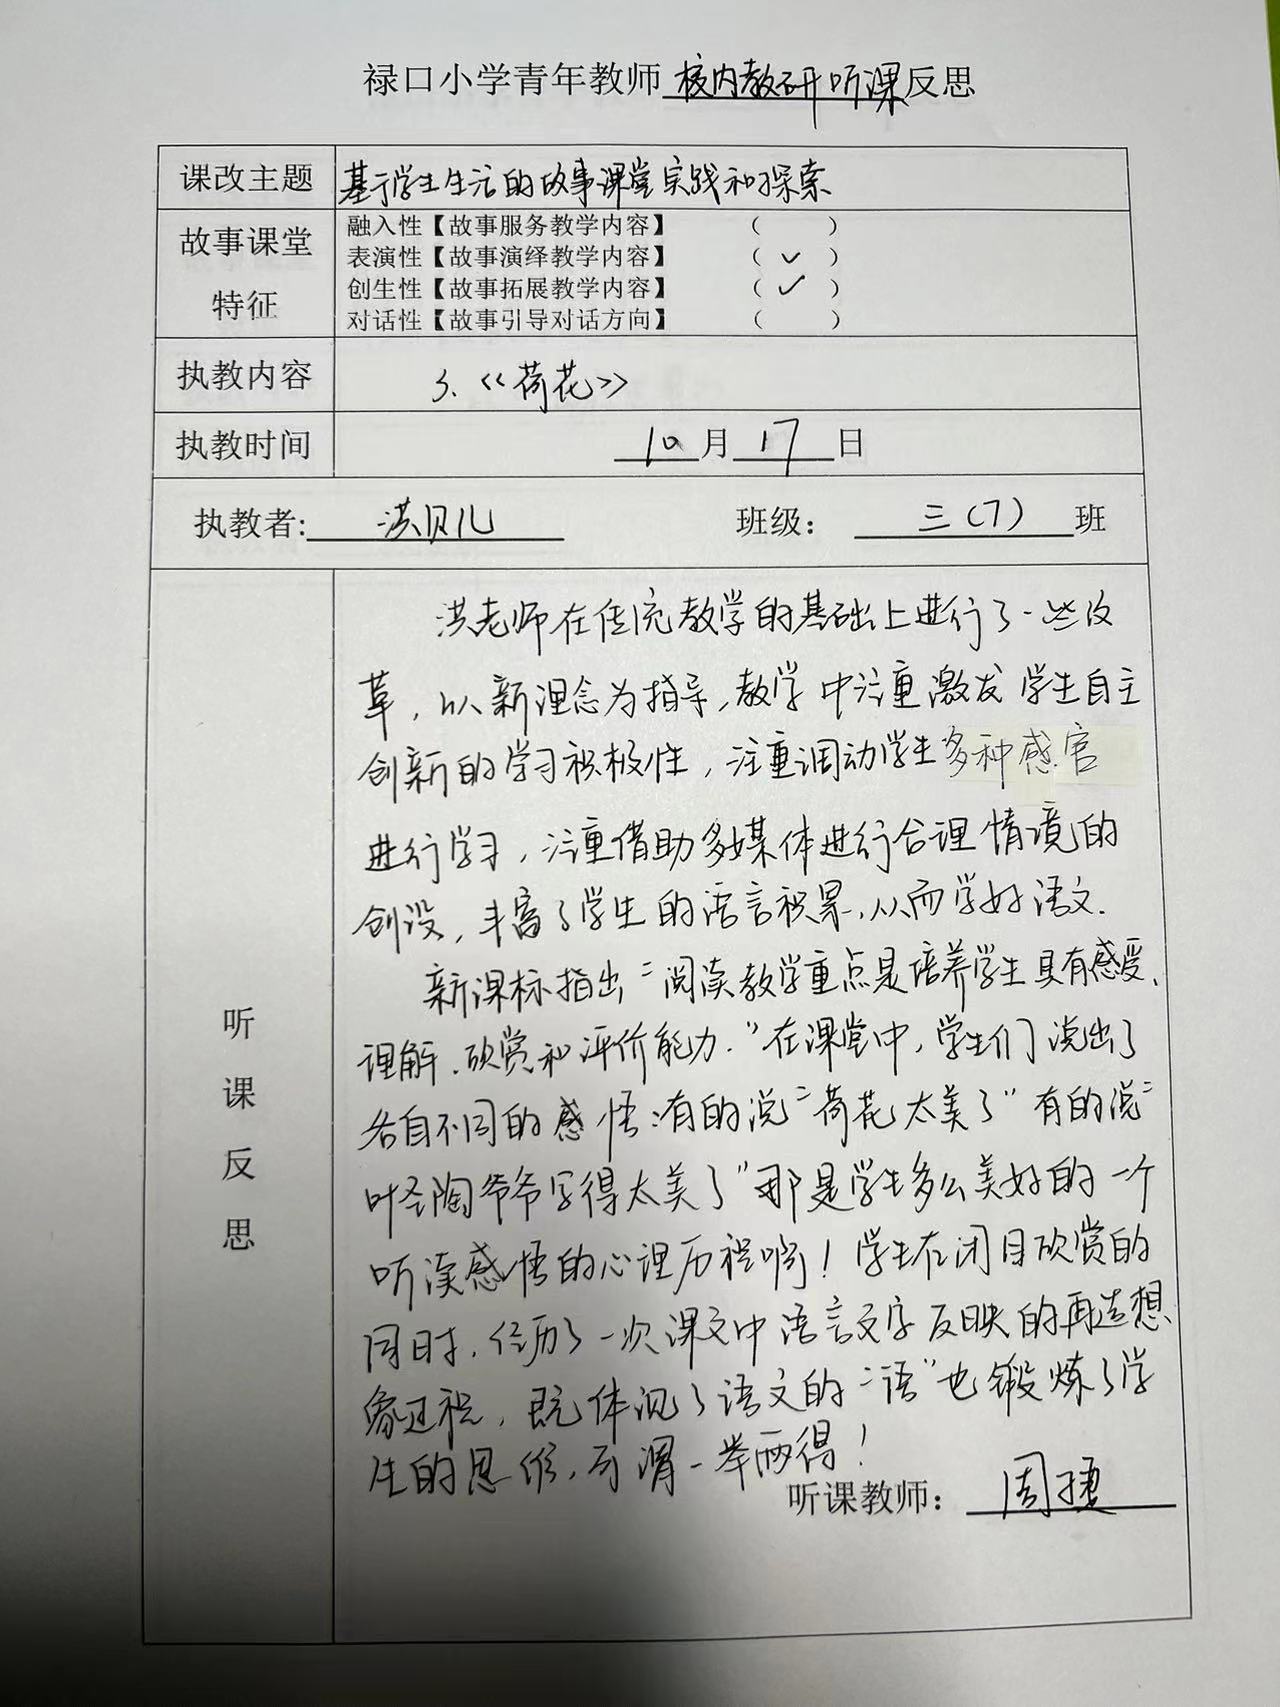 禄口小学青年教师校内教研听课反思
课改主题 基于学生生活的故事课堂实践和探索
故事课堂特征
融入性【故事服务教学内容】 （ ）
表演性【故事演绎教学内容】 （ ✓ ）
创生性【故事拓展教学内容】 （ ✓ ）
对话性【故事引导对话方向】 （ ）
执教内容 3、《荷花》
执教时间 10月17日
执教者：洪贝儿 班级：三（7）班
听课反思
洪老师在传统教学的基础上进行了一些改
革，以新理念为指导，教学中注重激发学生自主
创新的学习积极性，注重调动学生多种感官
进行学习，注重借助多媒体进行合理情境的
创设，丰富了学生的语言积累，从而学好语文.
新课标指出“阅读教学重点是培养学生具有感受、
理解、欣赏和评价能力.”在课堂中，学生们说出了
各自不同的感悟：有的说“荷花太美了”有的说“
叶圣陶爷爷写得太美了”那是学生多么美好的一个
听读感悟的心理历程啊！学生在闭目欣赏的
同时，经历了一次课文中语言文字反映的再造想
象过程，既体现了语文的“语”也锻炼了学
生的思维，可谓一举两得！
听课教师：周捷